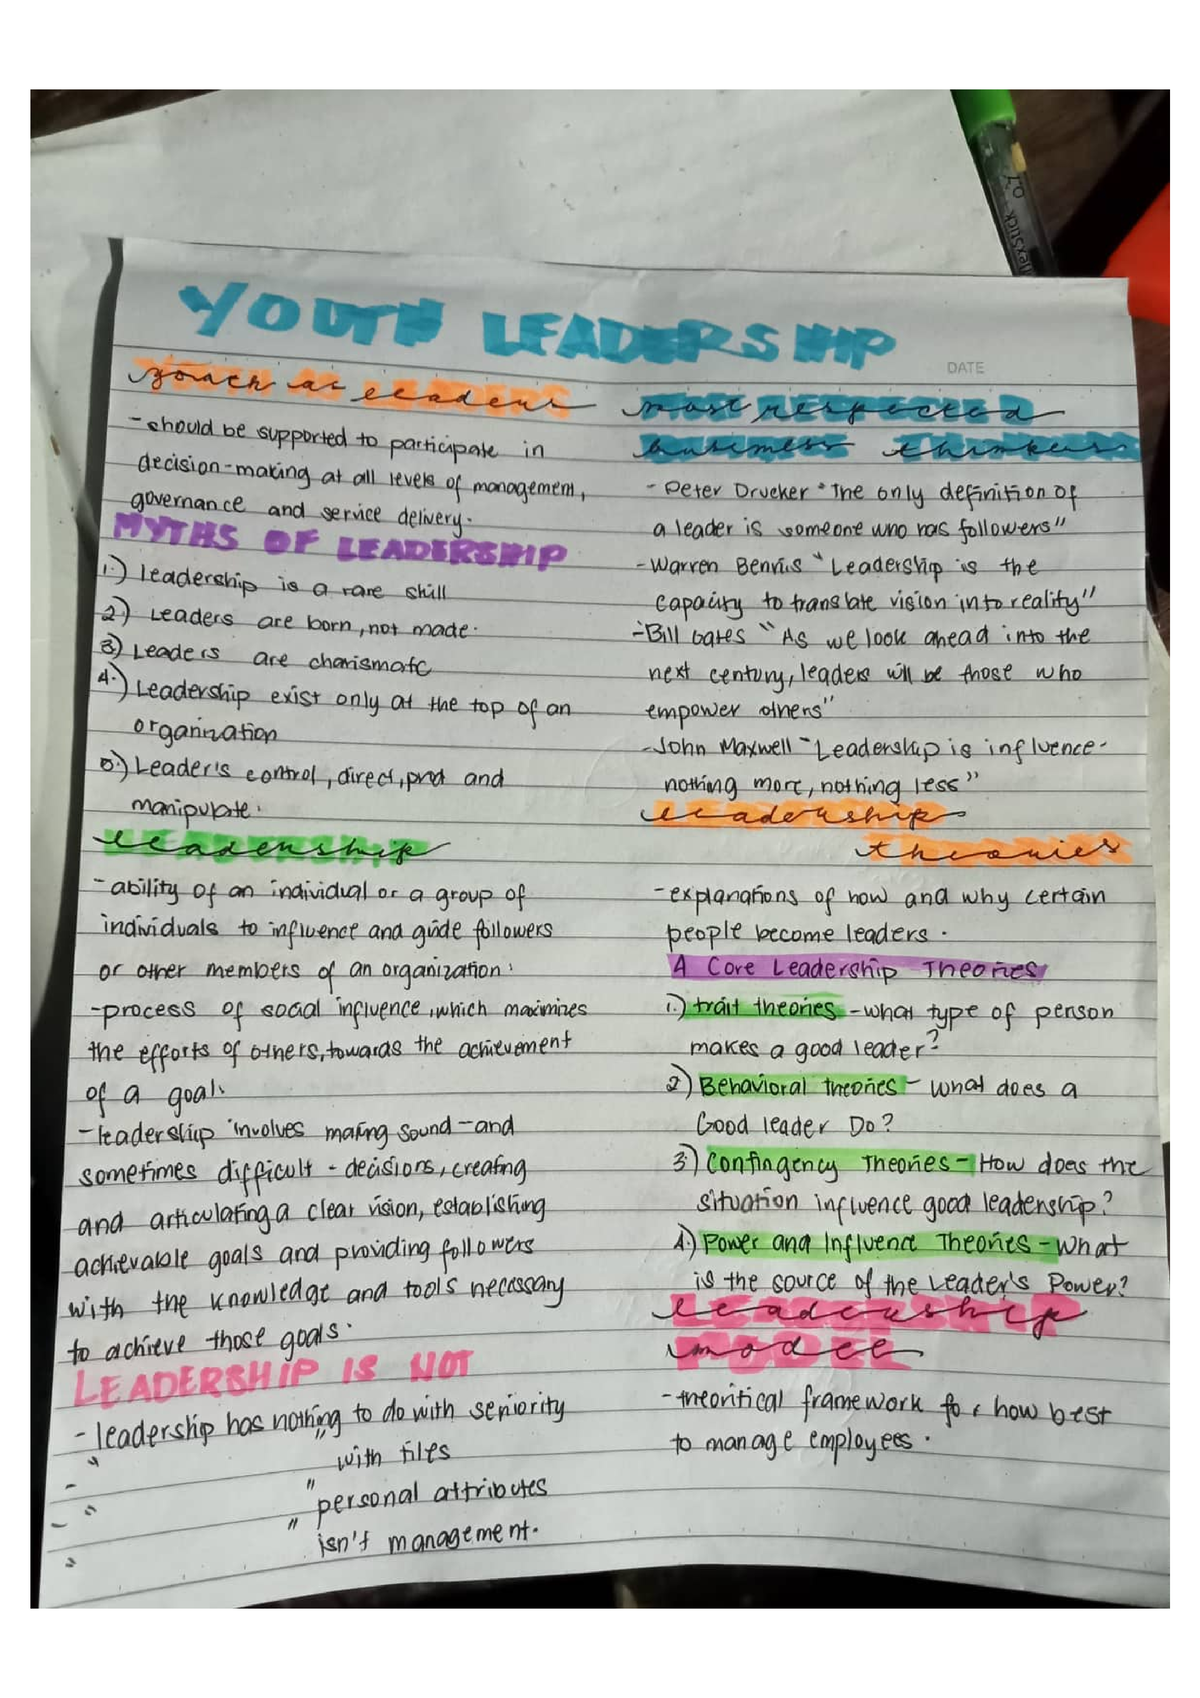 YOUTH LEADERSHIP
DATE
youth as leaders
-should be supported to participate in
decision-making at all levels of management,
governance and service delivery.
MYTHS OF LEADERSHIP
1.) leadership is a rare skill
2.) Leaders are born, not made.
3.) Leaders are charismatc
4.) Leadership exist only at the top of an
organization
5.) Leader's control, direct, prod and
manipulate.
leadership
-ability of an individual or a group of
individuals to influence and guide followers
or other members of an organization.
-process of social influence, which maximizes
the efforts of others, towards the achievement
of a goal.
-leadership involves making sound-and
sometimes difficult - decisions, creating
and articulating a clear vision, establishing
achievable goals and providing followers
with the knowledge and tools necessary
to achieve those goals.
LEADERSHIP IS NOT
- leadership has nothing to do with seniority
- " " with titles
- " " personal attributes
" " isn't management.
most respected
business thinkers
- Peter Drucker "The only definition of
a leader is someone who has followers"
-Warren Bennis "Leadership is the
capacity to translate vision into reality"
-Bill Gates "As we look ahead into the
next century, leaders will be those who
empower others"
-John Maxwell "Leadership is influence-
nothing more, nothing less"
leadership
theories
-explanations of how and why certain
people become leaders.
4 Core Leadership Theories
1.) trait theories -what type of person
makes a good leader?
2) Behavioral theories - What does a
Good leader Do?
3) Contingency Theories - How does the
situation influence good leadership?
4.) Power and Influence Theories - What
is the source of the Leader's Power?
leadership
model
-theoritical framework for how best
to manage employees.